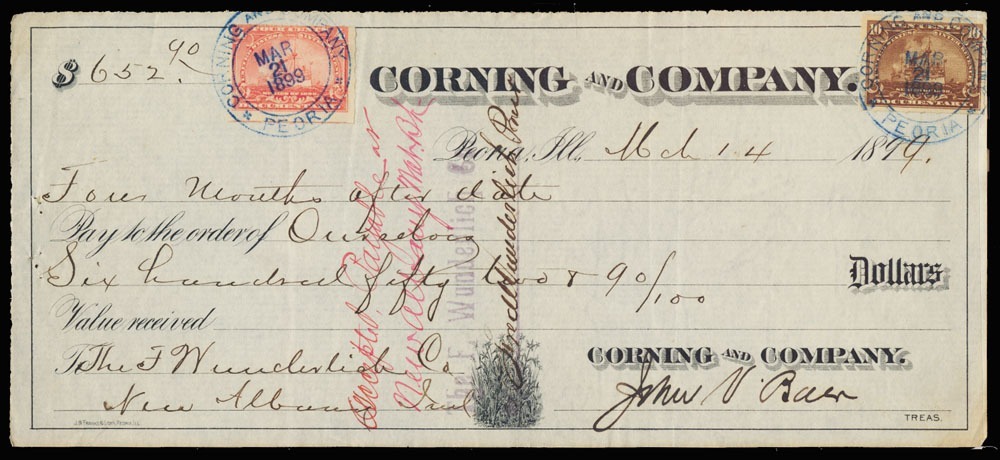 $652.90
CORNING AND COMPANY.
Peoria, Ill., Mch 14 1899.
Four Months after date
Pay to the order of Ourselves
Six hundred fifty two & 90/100 Dollars
Value received
To The F Wunderlich Co
New Albany Ind
CORNING AND COMPANY.
John V. Baer
TREAS.
CORNING AND COMPANY
MAR
21
1899
* PEORIA *
CORNING AND COMPANY
MAR
21
1899
* PEORIA *
10 10
DOCUMENTARY
Accepted Payable at
New Albany Natl Bk
The F. Wunderlich Co
Fred Wunderlich Prest